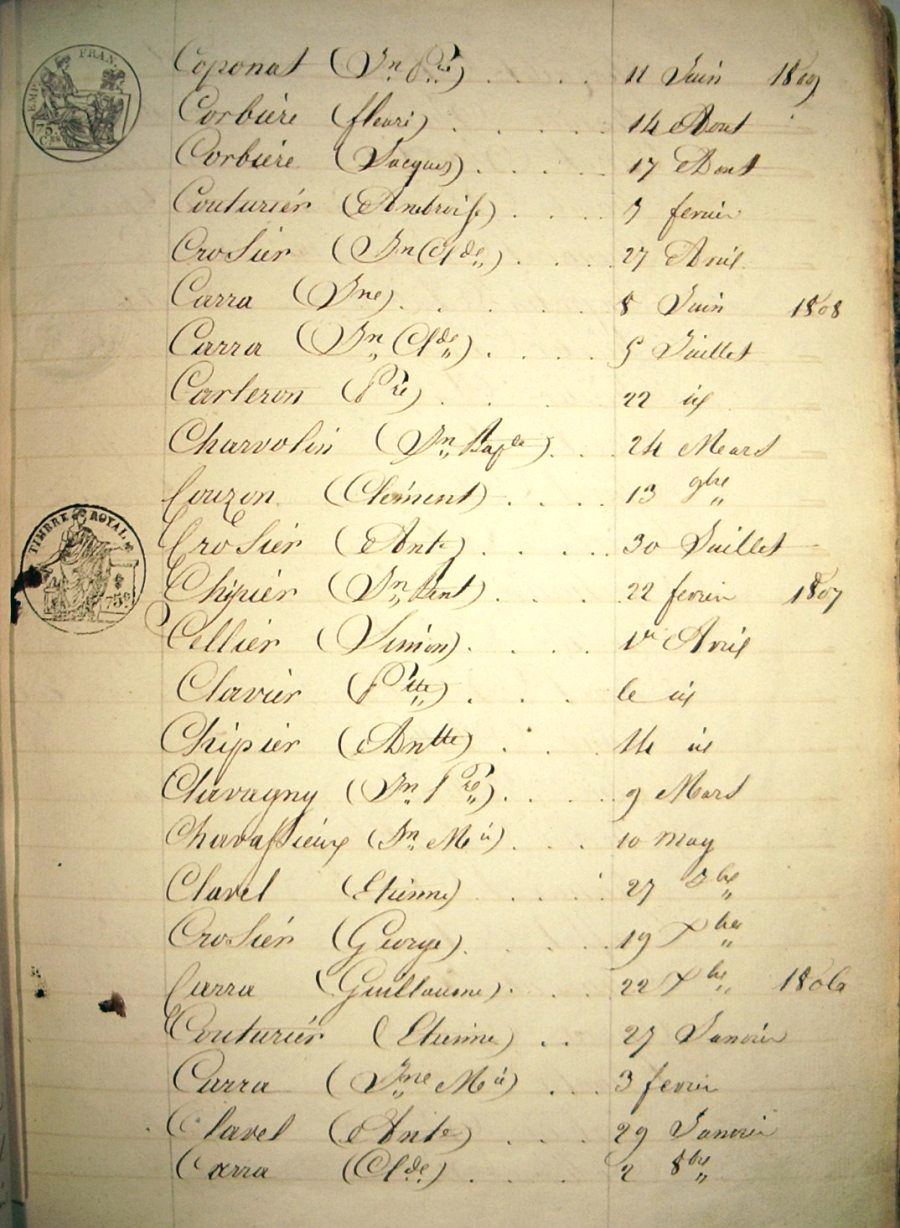 EMP. FRAN.
75 c.
Coponat (Jn Pre) . . . . 11 Juin 1809
Corbière (fleuri) . . . . 14 Aout
Corbière (Jacques) . . . . 17 Aout
Couturiér (Ambroise) . . . 7 fevrier
Crosiér (Jn Clde) . . . 27 Avril
Carra (Jne) . . . . 8 Juin 1808
Carra (Jn Clde) . . . . 5 Juillet
Carteron (Pre) . . . . 22 id
Charvolin (Jn Bapte) . . . 24 Mars
Couzon (Clément) . . . . 13 9bre
Crosiér (Ante) . . . . 30 Juillet
Chipiér (Jn) . . . . 22 fevrier 1807
TIMBRE ROYAL
75 c.
Cellier (Simon) . . . . 1er Avril
Clavier (Ptte) . . . . le id
Chipier (Antte) . . . 14 id
Chavagny (Jn Pre) . . . . 9 Mars
Chavassieux (Jn Mie) . . . 10 May
Clavel (Etienne) . . . . 27 bre
Crosiér (George) . . . . 19 Xbre
Carra (Guillaume) . . . . 22 Xbre 1806
Couturiér (Etienne) . . 27 Janvier
Carra (Jne Mie) . . . 3 fevrier
Clavel (Ante) . . . . 29 Janvier
Carra (Clde) . . . . 2 8bre